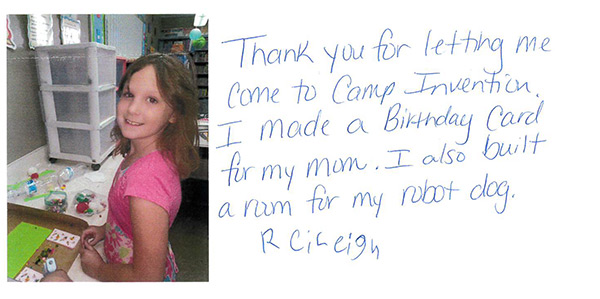 Thank you for letting me
come to Camp Invention.
I made a Birthday Card
for my mom. I also built
a room for my robot dog.
RCiLeigh